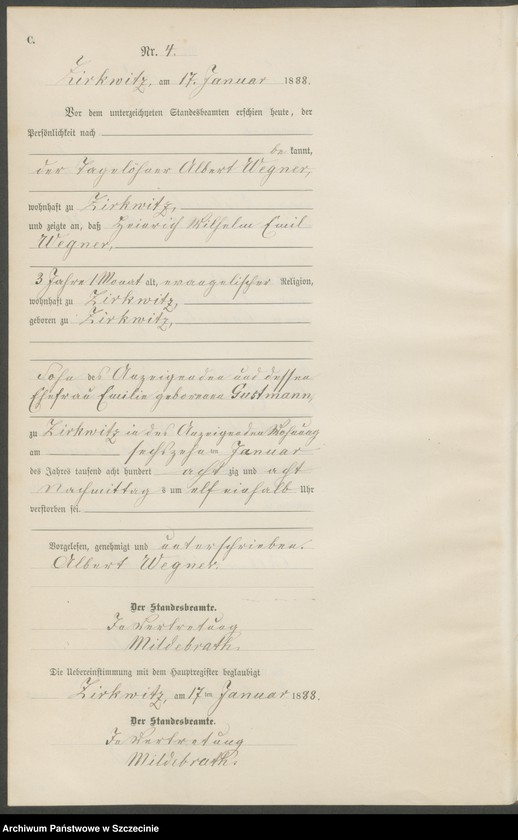 C.
Nr. 4.
Zirkwitz, am 17. Januar 1888.
Vor dem unterzeichneten Standesbeamten erschien heute, der
Persönlichkeit nach
be kannt,
der Tagelöhner Albert Wegner,
wohnhaft zu Zirkwitz,
und zeigte an, daß Heinrich Wilhelm Emil
Wegner,
3 Jahre 1 Monat alt, evangelischer Religion,
wohnhaft zu Zirkwitz,
geboren zu Zirkwitz,
Sohn des Anzeigenden und dessen
Ehefrau Emilie geborenen Gustmann,
zu Zirkwitz in des Anzeigenden Wohnung
am sechszehnten Januar
des Jahres tausend acht hundert acht zig und acht
Nachmittags um elf einhalb Uhr
verstorben sei.
Vorgelesen, genehmigt und unterschrieben.
Albert Wegner.
Der Standesbeamte.
In Vertretung
Mildebrath.
Die Uebereinstimmung mit dem Hauptregister beglaubigt
Zirkwitz, am 17ten Januar 1888.
Der Standesbeamte.
In Vertretung
Mildebrath.
Archiwum Państwowe w Szczecinie